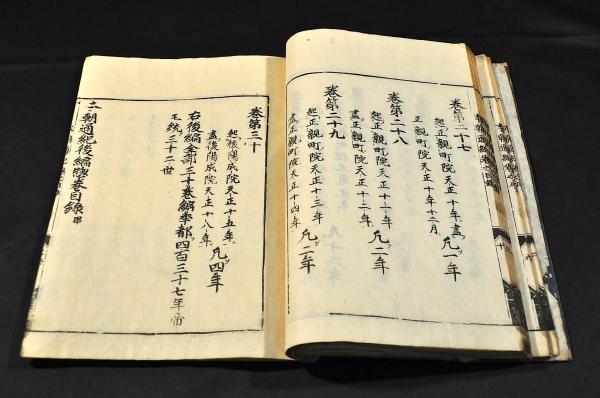 卷第二十七
正親町院天正十年盡
正親町院天正十年十二月 凡一年
卷第二十八
起正親町院天正十一年
盡正親町院天正十二年 凡二年
卷第二十九
起正親町院天正十三年
盡正親町院天正十四年 凡二年
卷第三十
起後陽成院天正十五年
盡後陽成院天正十八年 凡四年
右後編全部三十卷編季都四百三十七年帝
王統三十二世
朝通紀後編 卷目錄